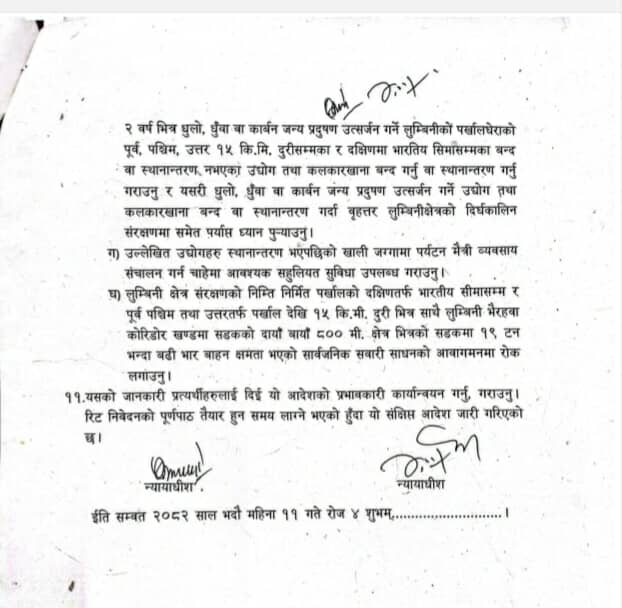 २ वर्ष भित्र धुलो, धुँवा वा कार्बन जन्य प्रदुषण उत्सर्जन गर्ने लुम्बिनीकों पर्खालघेराको
पूर्व, पश्चिम, उत्तर १५ कि.मि, दुरीसम्मका र दक्षिणमा भारतिय सिमासम्मका बन्द
वा स्थानान्तरण नभएका उद्योग तथा कलकारखाना बन्द गर्नु वा स्थानान्तरण गर्नु
गराउनु र यसरी धुलो, धुँवा वा कार्बन जन्य प्रदुषण उत्सर्जन गर्ने उद्योग तथा
कलकारखाना बन्द वा स्थानान्तरण गर्दा बृहत्तर लुम्बिनीक्षेत्रको दिर्घकालिन
संरक्षणमा समेत पर्याप्त ध्यान पुऱ्याउनु।
ग) उल्लेखित उद्योगहरु स्थानान्तरण भएपछिको खाली जग्गामा पर्यटन मैत्री व्यवसाय
संचालन गर्न चाहेमा आवश्यक सहुलियत सुविधा उपलब्ध गराउनु।
घ) लुम्बिनी क्षेत्र संरक्षणको निम्ति निर्मित पर्खालको दक्षिणतर्फ भारतीय सीमासम्म र
पूर्व पश्चिम तथा उत्तरतर्फ पर्खाल देखि १५ कि.मी. दुरी भित्र साथै लुम्बिनी भैरहवा
कोरिडोर खण्डमा सडकको दायाँ बायाँ ८०० मी. क्षेत्र भित्रको सडकमा १९ टन
भन्दा बढी भार बाहन क्षमता भएको सार्वजनिक सवारी साधनको आवागमनमा रोक
लगाउनु।
११.यसको जानकारी प्रत्यर्थीहरुलाई दिई यो आदेशको प्रभावकारी कार्यान्वयन गर्नु, गराउनु।
रिट निवेदनको पूर्णपाठ तैयार हुन समय लाग्ने भएको हुँदा यो संक्षिप्त आदेश जारी गरिएको
छ।
न्यायाधीश
न्यायाधीश
ईति सम्वत २०८२ साल भदौ महिना ११ गते रोज ४ शुभम्..............................।